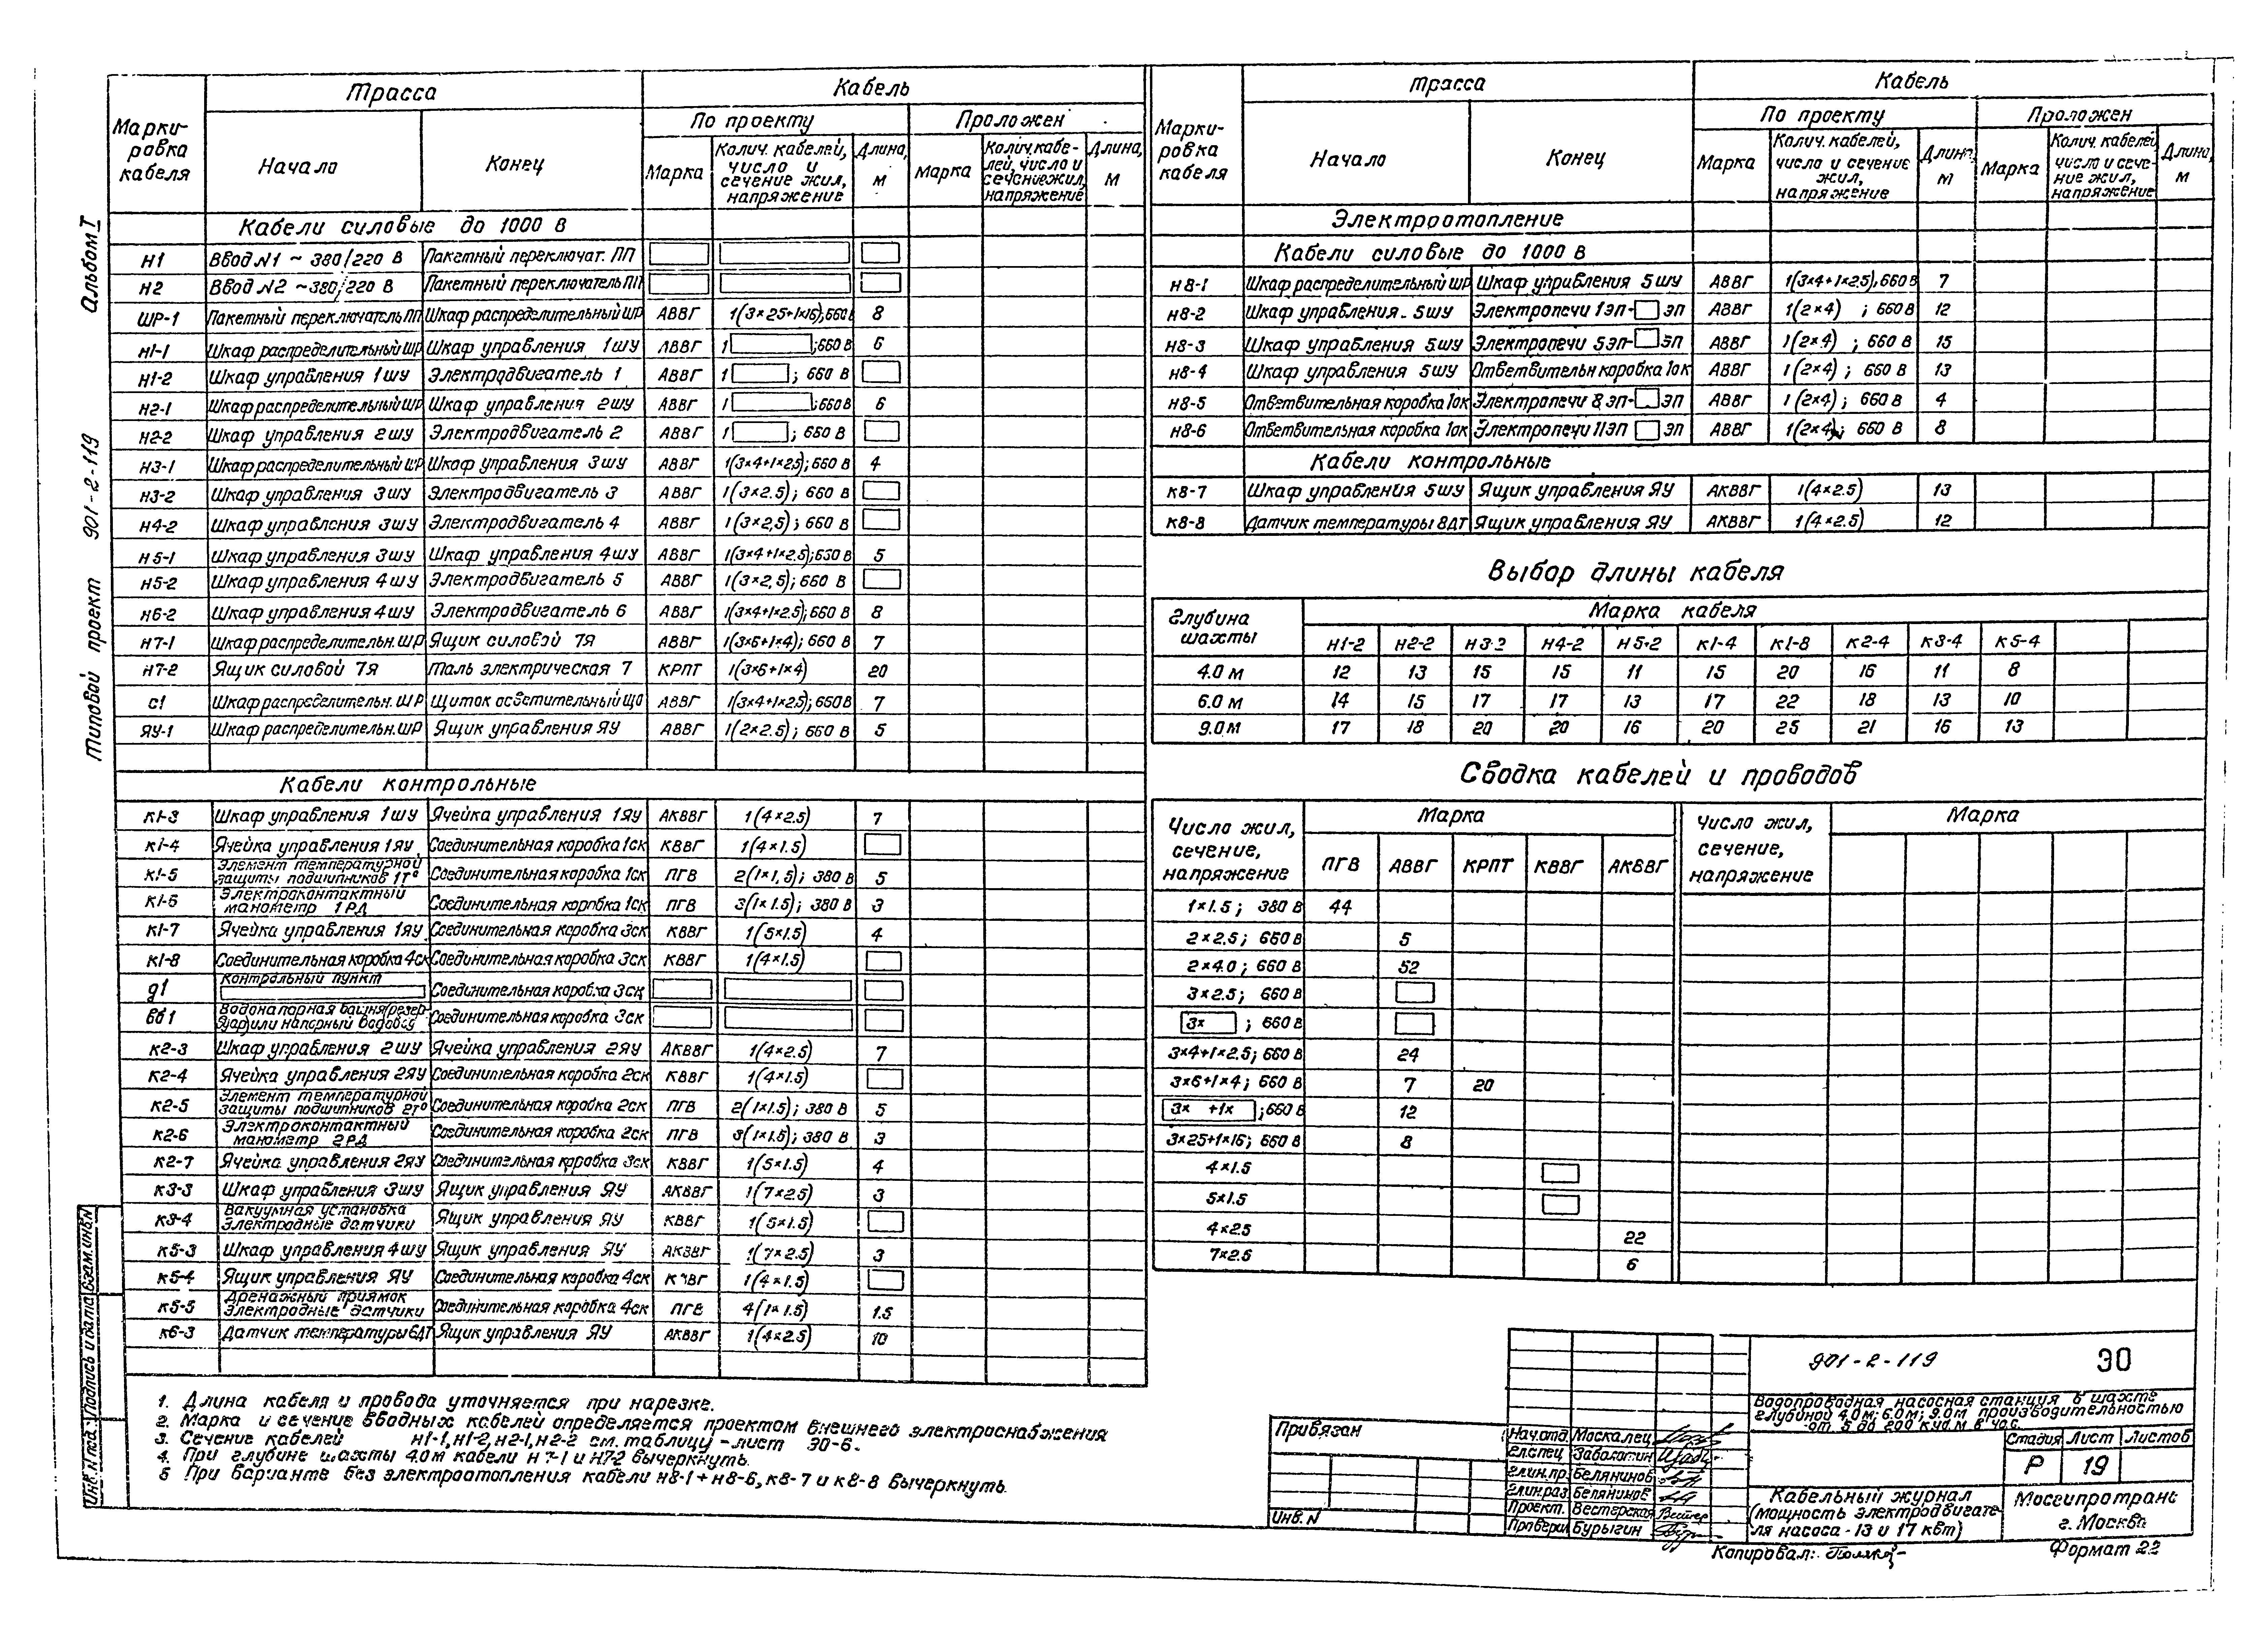 Альбом I
Типовой проект 901-2-119
Марки-
ровка
кабеля
Трасса
Кабель
Начало
Конец
По проекту
Проложен
Марка
Колич. кабелей,
число и
сечение жил,
напряжение
Длина,
м
Марка
Колич. кабе-
лей, число и
сечение жил,
напряжение
Длина,
м
Кабели силовые до 1000 В
Н1 Ввод N1 ~ 380/220 В Пакетный переключат. ПП
Н2 Ввод N2 ~ 380/220 В Пакетный переключатель ПП
ШР-1 Пакетный переключатель ПП Шкаф распределительный ШР АВВГ 1(3×25+1×16); 660В 8
Н1-1 Шкаф распределительный ШР Шкаф управления 1ШУ АВВГ 1 ; 660 В 6
Н1-2 Шкаф управления 1ШУ Электродвигатель 1 АВВГ 1 ; 660 В
Н2-1 Шкаф распределительный ШР Шкаф управления 2ШУ АВВГ 1 ; 660 В 6
Н2-2 Шкаф управления 2ШУ Электродвигатель 2 АВВГ 1 ; 660 В
Н3-1 Шкаф распределительный ШР Шкаф управления 3ШУ АВВГ 1(3×4+1×2.5); 660 В 4
Н3-2 Шкаф управления 3ШУ Электродвигатель 3 АВВГ 1(3×2.5); 660 В
Н4-2 Шкаф управления 3ШУ Электродвигатель 4 АВВГ 1(3×2,5); 660 В
Н5-1 Шкаф управления 3ШУ Шкаф управления 4ШУ АВВГ 1(3×4+1×2.5); 660 В 5
Н5-2 Шкаф управления 4ШУ Электродвигатель 5 АВВГ 1(3×2,5); 660 В
Н6-2 Шкаф управления 4ШУ Электродвигатель 6 АВВГ 1(3×4+1×2.5); 660 В 8
Н7-1 Шкаф распределительн. ШР Ящик силовой 7Я АВВГ 1(3×6+1×4); 660 В 7
Н7-2 Ящик силовой 7Я Таль электрическая 7 КРПТ 1(3×6+1×4) 20
С1 Шкаф распределительн. ШР Щиток осветительный ЩО АВВГ 1(3×4+1×2.5); 660В 7
ЯУ-1 Шкаф распределительн. ШР Ящик управления ЯУ АВВГ 1(2×2.5); 660 В 5
Кабели контрольные
К1-3 Шкаф управления 1ШУ Ячейка управления 1ЯУ АКВВГ 1(4×2.5) 7
К1-4 Ячейка управления 1ЯУ Соединительная коробка 1СК КВВГ 1(4×1.5)
К1-5 Элемент температурной
защиты подшипников 1Т° Соединительная коробка 1СК ПГВ 2(1×1,5); 380 В 5
К1-6 Электроконтактный
манометр 1РД Соединительная коробка 1СК ПГВ 3(1×1.5); 380 В 3
К1-7 Ячейка управления 1ЯУ Соединительная коробка 3СК КВВГ 1(5×1.5) 4
К1-8 Соединительная коробка 4СК Соединительная коробка 3СК КВВГ 1(4×1.5)
Д1 Контрольный пункт Соединительная коробка 3СК
ВБ1 Водонапорная башня (резер-
вуар) или напорный водовод Соединительная коробка 3СК
К2-3 Шкаф управления 2ШУ Ячейка управления 2ЯУ АКВВГ 1(4×2.5) 7
К2-4 Ячейка управления 2ЯУ Соединительная коробка 2СК КВВГ 1(4×1.5)
К2-5 Элемент температурной
защиты подшипников 2Т° Соединительная коробка 2СК ПГВ 2(1×1.5); 380 В 5
К2-6 Электроконтактный
манометр 2РД Соединительная коробка 2СК ПГВ 3(1×1.5); 380 В 3
К2-7 Ячейка управления 2ЯУ Соединительная коробка 3СК КВВГ 1(5×1.5) 4
К3-3 Шкаф управления 3ШУ Ящик управления ЯУ АКВВГ 1(7×2.5) 3
К3-4 Вакуумная установка
Электродные датчики Ящик управления ЯУ КВВГ 1(5×1.5)
К5-3 Шкаф управления 4ШУ Ящик управления ЯУ АКВВГ 1(7×2.5) 3
К5-4 Ящик управления ЯУ Соединительная коробка 4СК КВВГ 1(4×1.5)
К5-5 Дренажный приямок
Электродные датчики Соединительная коробка 4СК ПГВ 4(1×1.5) 1.5
К6-3 Датчик температуры 6ДТ Ящик управления ЯУ АКВВГ 1(4×2.5) 10
1. Длина кабеля и провода уточняется при нарезке.
2. Марка и сечение вводных кабелей определяется проектом внешнего электроснабжения
3. Сечение кабелей Н1-1, Н1-2, Н2-1, Н2-2 см. таблицу - лист ЭО-6.
4. При глубине шахты 4.0м кабели Н7-1 и Н7-2 вычеркнуть.
5 При варианте без электроотопления кабели Н8-1 ÷ Н8-6, К8-7 и К8-8 вычеркнуть.
Марки-
ровка
кабеля
Трасса
Кабель
Начало
Конец
По проекту
Проложен
Марка
Колич. кабелей,
число и сечение
жил,
напряжение
Длина
м
Марка
Колич. кабелей
число и сече-
ние жил,
напряжение
Длина,
м
Электроотопление
Кабели силовые до 1000 В
Н8-1 Шкаф распределительный ШР Шкаф управления 5ШУ АВВГ 1(3×4+1×2.5); 660 В 7
Н8-2 Шкаф управления - 5ШУ Электропечи 1ЭП- ЭП АВВГ 1(2×4) ; 660 В 12
Н8-3 Шкаф управления 5ШУ Электропечи 5ЭП- ЭП АВВГ 1(2×4) ; 660 В 15
Н8-4 Шкаф управления 5ШУ Ответвительн коробка 1ОК АВВГ 1(2×4) ; 660 В 13
Н8-5 Ответвительная коробка 1ОК Электропечи 8ЭП- ЭП АВВГ 1(2×4) ; 660 В 4
Н8-6 Ответвительная коробка 1ОК Электропечи 11ЭП ЭП АВВГ 1(2×4); 660 В 8
Кабели контрольные
К8-7 Шкаф управления 5ШУ Ящик управления ЯУ АКВВГ 1(4×2.5) 13
К8-8 Датчик температуры 8ДТ Ящик управления ЯУ АКВВГ 1(4×2.5) 12
Выбор длины кабеля
Глубина
шахты
Марка кабеля
Н1-2 Н2-2 Н3-2 Н4-2 Н5-2 К1-4 К1-8 К2-4 К3-4 К5-4
4.0 м 12 13 15 15 11 15 20 16 11 8
6.0 м 14 15 17 17 13 17 22 18 13 10
9.0 м 17 18 20 20 16 20 25 21 16 13
Сводка кабелей и проводов
Число жил,
сечение,
напряжение
Марка
ПГВ АВВГ КРПТ КВВГ АКВВГ
Число жил,
сечение,
напряжение
Марка
1×1.5; 380 В 44
2×2.5; 660 В 5
2×4.0; 660 В 52
3×2.5; 660 В
3× ; 660 В
3×4+1×2.5; 660 В 24
3×6+1×4; 660 В 7 20
3× +1× ; 660 В 12
3×25+1×16; 660 В 8
4×1.5
5×1.5
4×2.5 22
7×2.5 6
901-2-119 ЭО
Водопроводная насосная станция в шахте
глубиной 4.0м; 6.0м; 9.0м производительностью
от 5 до 200 куб.м в час.
Стадия Лист Листов
Р 19
Кабельный журнал
(мощность электродвигате-
ля насоса - 13 и 17 квт)
Мосгипротранс
г. Москва
Привязан
Инв. N
Нач.отд. Москалец
Гл.спец Заболотин
Гл.ин.пр. Белянинов
Гл.ин.раз. Белянинов
Проект. Вестерская
Проверил Бурыгин
Копировал:
Формат 22
Инв. N подл. Подпись и дата Взам. инв. N